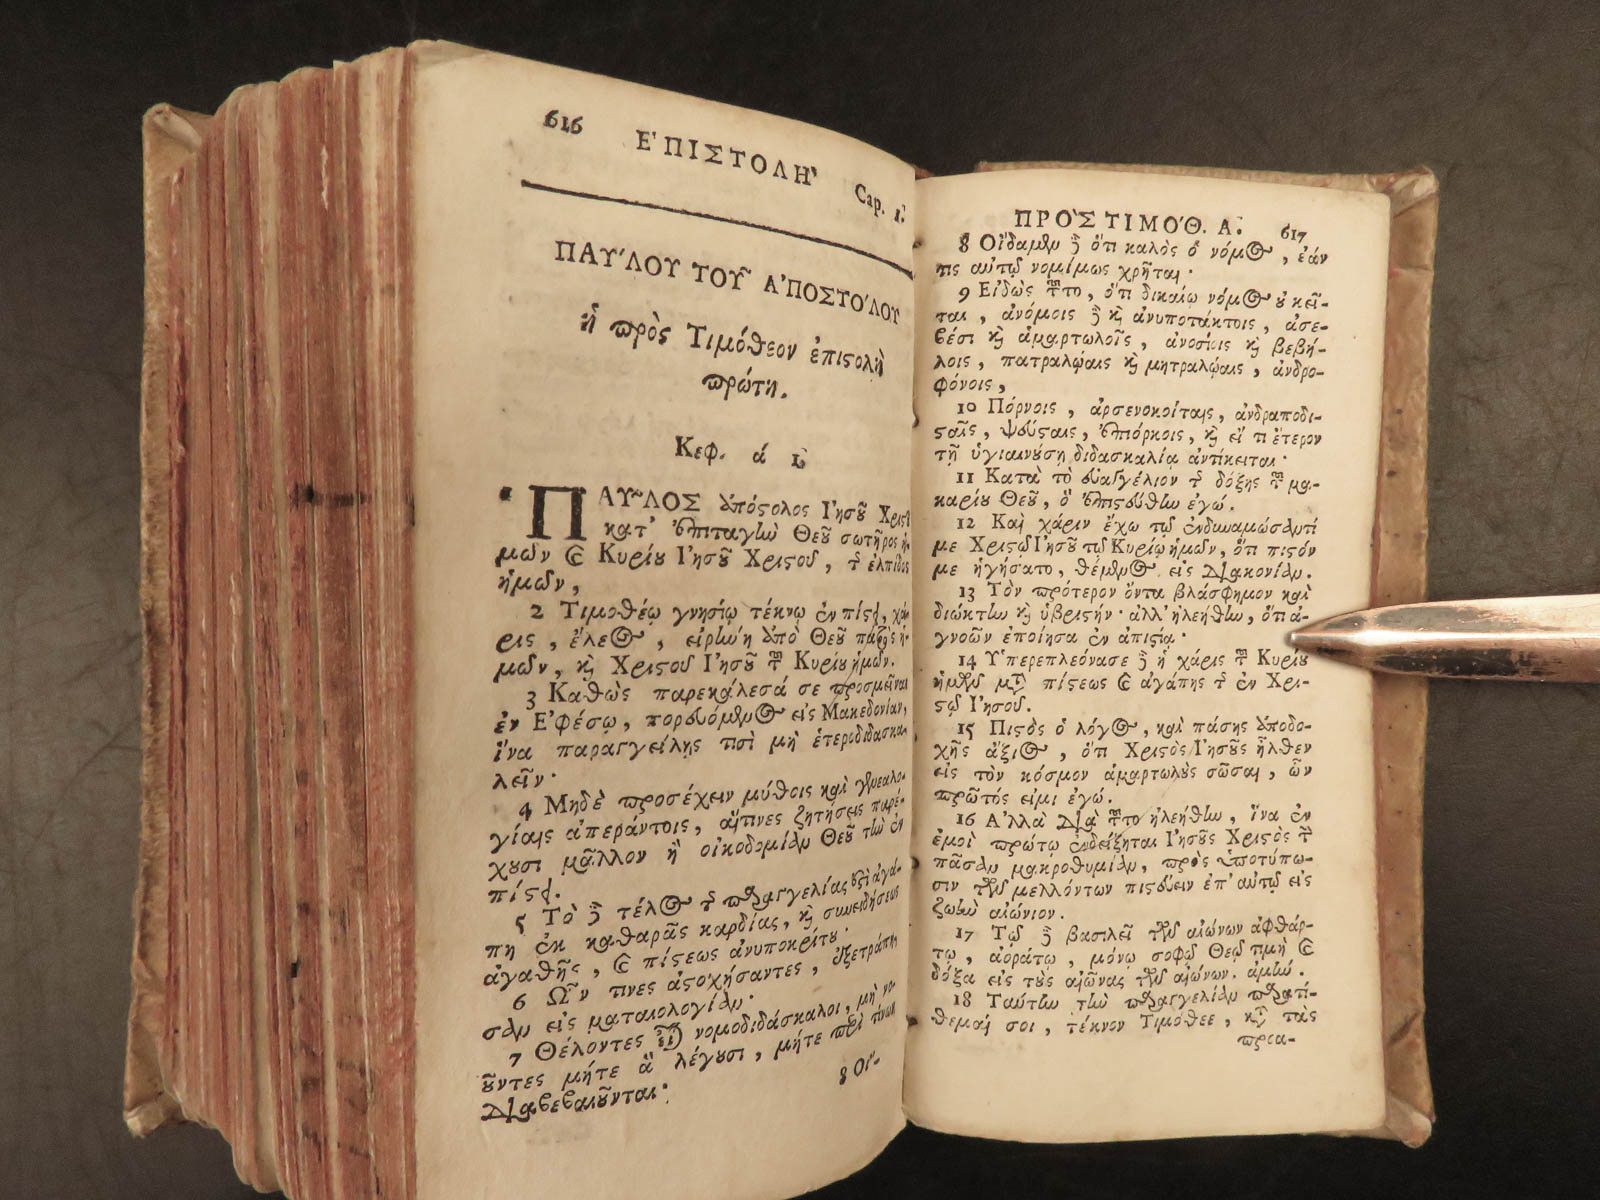 616 Ε᾿ΠΙΣΤΟΛΗ᾿ Cap. 1.
ΠΑΥ῀ΛΟΥ ΤΟΥ῀ Α᾿ΠΟΣΤΟ´ΛΟΥ
ἡ πρὸς Τιμόθεον ἐπιϛολὴ
πρώτη.
Κεφ. ά 1.
ΠΑΥ῀ΛΟΣ ἀπόϛολος Ἰησοῦ Χριϛοῦ
κατ᾿ ἐπιταγὴν Θεοῦ σωτῆρος ἡ-
μῶν καὶ Κυρίου Ἰησοῦ Χριϛοῦ, τῆς ἐλπίδος
ἡμῶν,
2 Τιμοθέῳ γνησίῳ τέκνῳ ἐν πίϛει, χά-
ρις, ἔλεος, εἰρήνη ἀπὸ Θεοῦ πατρὸς ἡ-
μῶν, καὶ Χριϛοῦ Ἰησοῦ τοῦ Κυρίου ἡμῶν.
3 Καθὼς παρεκάλεσά σε προσμεῖναι
ἐν Ἐφέσῳ, πορευόμενος εἰς Μακεδονίαν,
ἵνα παραγγείλῃς τισὶ μὴ ἑτεροδιδασκα-
λεῖν·
4 Μηδὲ προσέχειν μύθοις καὶ γενεαλο-
γίαις ἀπεράντοις, αἵτινες ζητήσεις παρέ-
χουσι μᾶλλον ἢ οἰκοδομίαν Θεοῦ τὴν ἐν
πίϛει.
5 Τὸ δὲ τέλος τῆς παραγγελίας ἐϛὶ ἀγά-
πη ἐκ καθαρᾶς καρδίας, καὶ συνειδήσεως
ἀγαθῆς, καὶ πίϛεως ἀνυποκρίτου·
6 Ὧν τινες ἀϛοχήσαντες, ἐξετράπησαν
εἰς ματαιολογίαν·
7 Θέλοντες εἶναι νομοδιδάσκαλοι, μὴ νο-
οῦντες μήτε ἃ λέγουσι, μήτε περὶ τίνων
διαβεβαιοῦνται·
8 Οἴ-
ΠΡΟ`Σ ΤΙΜΟ´Θ. Α. 617
8 Οἴδαμεν δὲ ὅτι καλὸς ὁ νόμος, ἐάν
τις αὐτῷ νομίμως χρῆται·
9 Εἰδὼς τοῦτο, ὅτι δικαίῳ νόμος οὐ κεῖ-
ται, ἀνόμοις δὲ καὶ ἀνυποτάκτοις, ἀσε-
βέσι καὶ ἁμαρτωλοῖς, ἀνοσίοις καὶ βεβή-
λοις, πατραλῴαις καὶ μητραλῴαις, ἀνδρο-
φόνοις,
10 Πόρνοις, ἀρσενοκοίταις, ἀνδραποδι-
ϛαῖς, ψεύϛαις, ἐπιόρκοις, καὶ εἴ τι ἕτερον
τῇ ὑγιαινούσῃ διδασκαλίᾳ ἀντίκειται·
11 Κατὰ τὸ εὐαγγέλιον τῆς δόξης τοῦ μα-
καρίου Θεοῦ, ὃ ἐπιϛεύθην ἐγώ.
12 Καὶ χάριν ἔχω τῷ ἐνδυναμώσαντί
με Χριϛῷ Ἰησοῦ τῷ Κυρίῳ ἡμῶν, ὅτι πιϛόν
με ἡγήσατο, θέμενος εἰς διακονίαν.
13 Τὸν πρότερον ὄντα βλάσφημον καὶ
διώκτην καὶ ὑβριϛήν· ἀλλ᾿ ἠλεήθην, ὅτι ἀ-
γνοῶν ἐποίησα ἐν ἀπιϛίᾳ·
14 Ὑπερεπλεόνασε δὲ ἡ χάρις τοῦ Κυρίου
ἡμῶν μετὰ πίϛεως καὶ ἀγάπης τῆς ἐν Χρι-
ϛῷ Ἰησοῦ.
15 Πιϛὸς ὁ λόγος, καὶ πάσης ἀποδο-
χῆς ἄξιος, ὅτι Χριϛὸς Ἰησοῦς ἦλθεν
εἰς τὸν κόσμον ἁμαρτωλοὺς σῶσαι, ὧν
πρῶτός εἰμι ἐγώ.
16 Ἀλλὰ διὰ τοῦτο ἠλεήθην, ἵνα ἐν
ἐμοὶ πρώτῳ ἐνδείξηται Ἰησοῦς Χριϛὸς τὴν
πᾶσαν μακροθυμίαν, πρὸς ὑποτύπω-
σιν τῶν μελλόντων πιϛεύειν ἐπ᾿ αὐτῷ εἰς
ζωὴν αἰώνιον.
17 Τῷ δὲ βασιλεῖ τῶν αἰώνων ἀφθάρ-
τῳ, ἀοράτῳ, μόνῳ σοφῷ Θεῷ τιμὴ καὶ
δόξα εἰς τοὺς αἰῶνας τῶν αἰώνων. ἀμήν.
18 Ταύτην τὴν παραγγελίαν παρατί-
θεμαί σοι, τέκνον Τιμόθεε, κατὰ τὰς
προα-